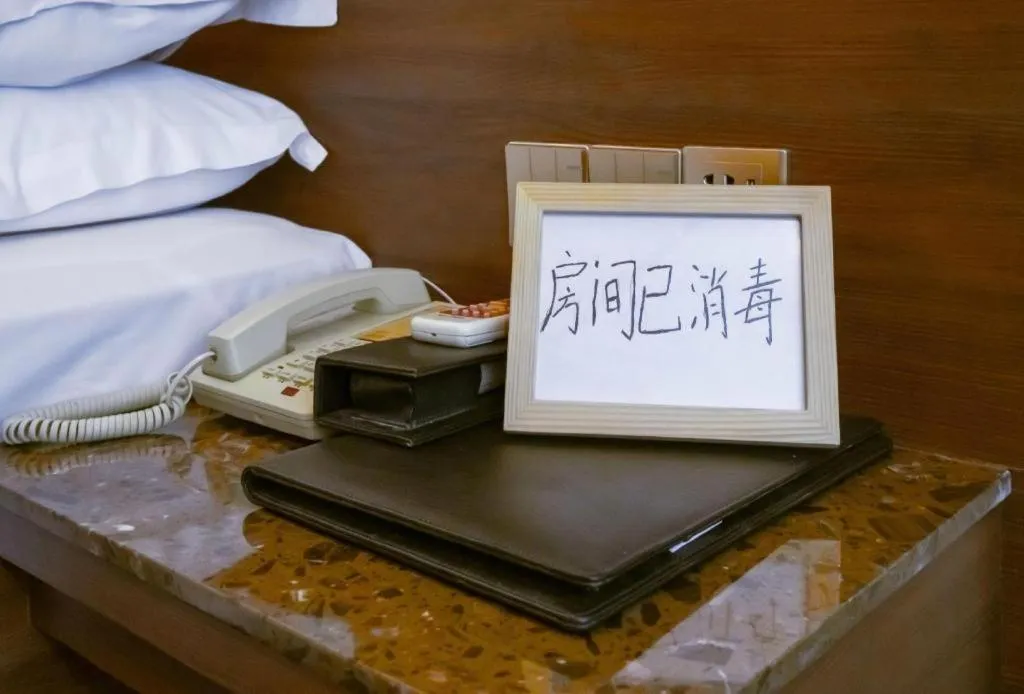 房间已消毒